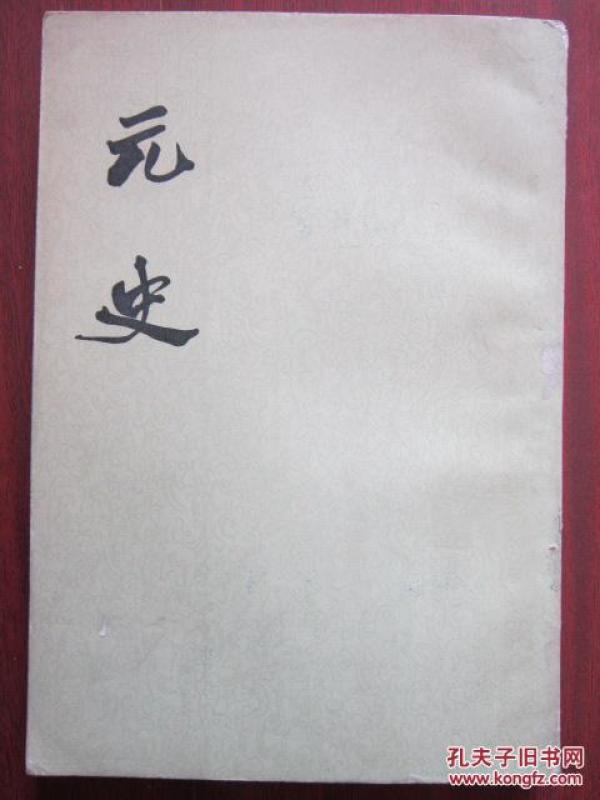 元史
孔夫子旧书网
www.kongfz.com